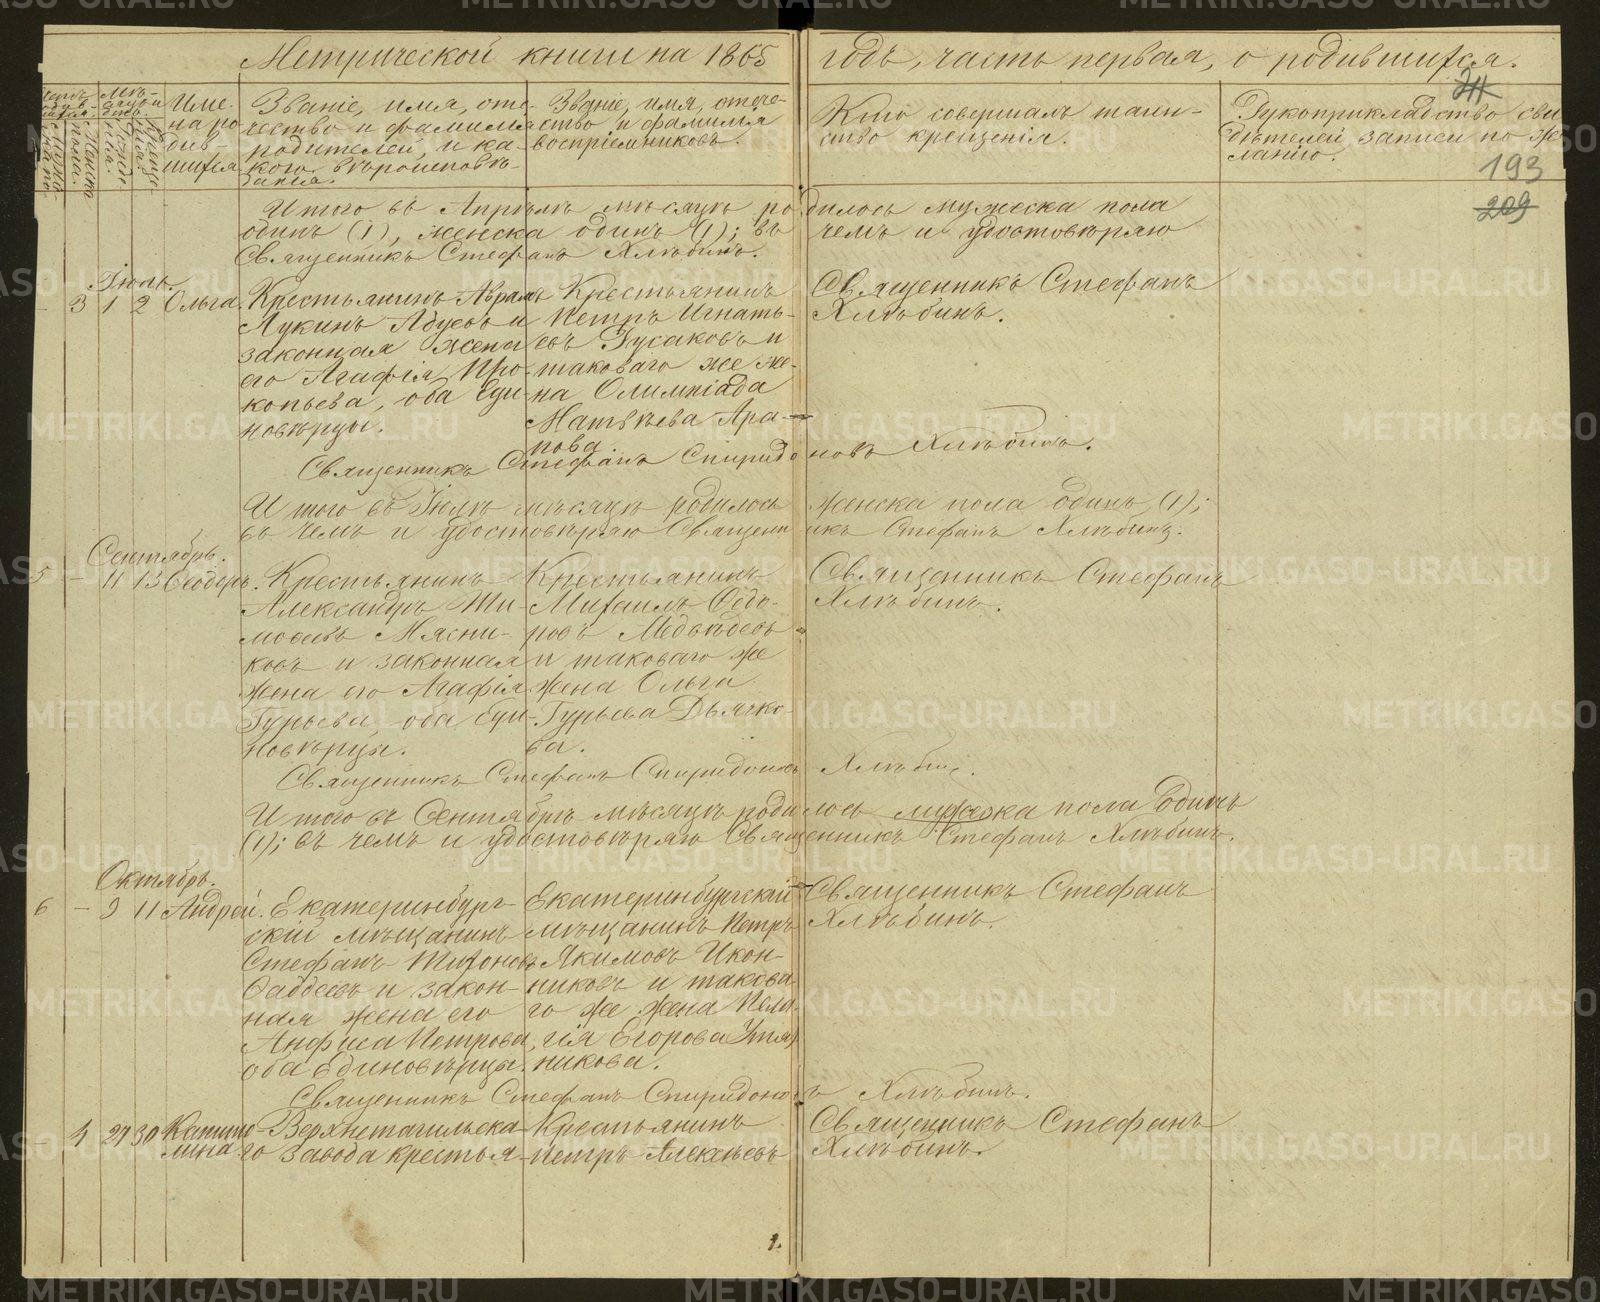 Метрической книги на 1865 годъ, часть первая, о родившихся.
Имена родившихся.
Званіе, имя, отечество и фамилія родителей, и какого вѣроисповѣданія.
Званіе, имя, отечество и фамилія воспріемниковъ.
Кто совершалъ таинство крещенія.
Рукоприкладство свидѣтелей записи по желанію.
193
209
Итого въ Апрѣлѣ мѣсяцѣ родилось мужеска пола
одинъ (1), женска одинъ (1); въ чемъ и удостовѣряю
Священникъ Стефанъ Хлѣбинъ.
Іюль.
3 1 2 Ольга.
Крестьянинъ Аврамъ
Лукинъ Абуевъ и
законная жена
его Агафія Про-
копьева, оба Еди-
новѣрцы.
Крестьянинъ
Петръ Игнать-
евъ Гусаковъ и
таковаго же же-
на Олимпіада
Матвѣева Ара-
пова.
Священникъ Стефанъ
Хлѣбинъ.
Священникъ Стефанъ Спиридоновъ Хлѣбинъ.
Итого въ Іюлѣ мѣсяцѣ родилось женска пола одинъ (1);
въ чемъ и удостовѣряю Священникъ Стефанъ Хлѣбинъ.
Сентябрь.
5 – 11 13 Ѳеодоръ.
Крестьянинъ
Александръ Ти-
моѳеевъ Мясни-
ковъ и законная
жена его Агафія
Гурьева, оба Еди-
новѣрцы.
Крестьянинъ
Михаилъ Ѳедо-
ровъ Медвѣдевъ
и таковаго же
жена Ольга
Гурьева Дьячко-
ва.
Священникъ Стефанъ
Хлѣбинъ.
Священникъ Стефанъ Спиридоновъ Хлѣбинъ.
Итого въ Сентябрѣ мѣсяцѣ родилось мужеска пола одинъ
(1); въ чемъ и удостовѣряю Священникъ Стефанъ Хлѣбинъ.
Октябрь.
6 – 9 11 Андрей.
Екатеринбург-
скій мѣщанинъ
Стефанъ Тихоновъ
Ѳаддеевъ и закон-
ная жена его
Анфиса Петрова,
оба Единовѣрцы.
Екатеринбургскій
мѣщанинъ Петръ
Якимовъ Икон-
никовъ и такова-
го же жена Пела-
гія Егорова Утя-
никова.
Священникъ Стефанъ
Хлѣбинъ.
Священникъ Стефанъ Спиридоновъ Хлѣбинъ.
– 4 27 30 Капито-
лина
Верхнетагильска-
го завода крестья-
Крестьянинъ
Петръ Алексѣевъ
Священникъ Стефанъ
Хлѣбинъ.
METRIKI.GASO-URAL.RU